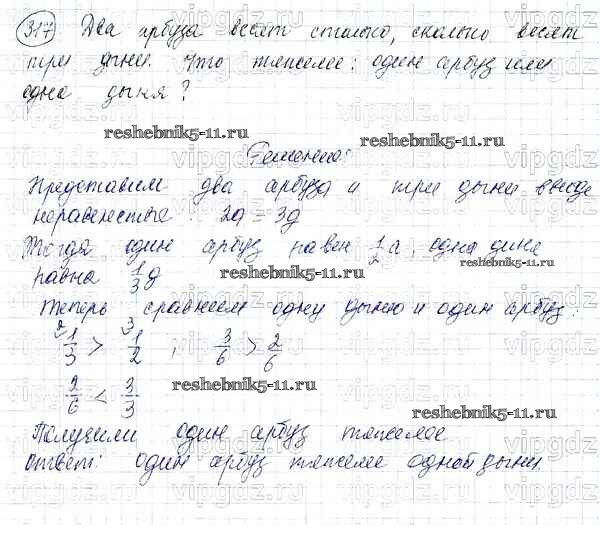 317 Два арбуза весят столько, сколько весят
три дыни. Что тяжелее: один арбуз или
одна дыня?
reshebnik5-11.ru
Решение:
Представим два арбуза и три дыни ввиде
неравенства: 2а = 3д
Тогда один арбуз равен 1/2 а, одна дыня
равна 1/3 д
reshebnik5-11.ru
Теперь сравнием одну дыню и один арбуз:
2 1/3 > 3 1/2 , 3/6 > 2/6
2/6 < 3/3
reshebnik5-11.ru
reshebnik5-11.ru
Получили один арбуз тяжелее
Ответ: один арбуз тяжелее одной дыни.